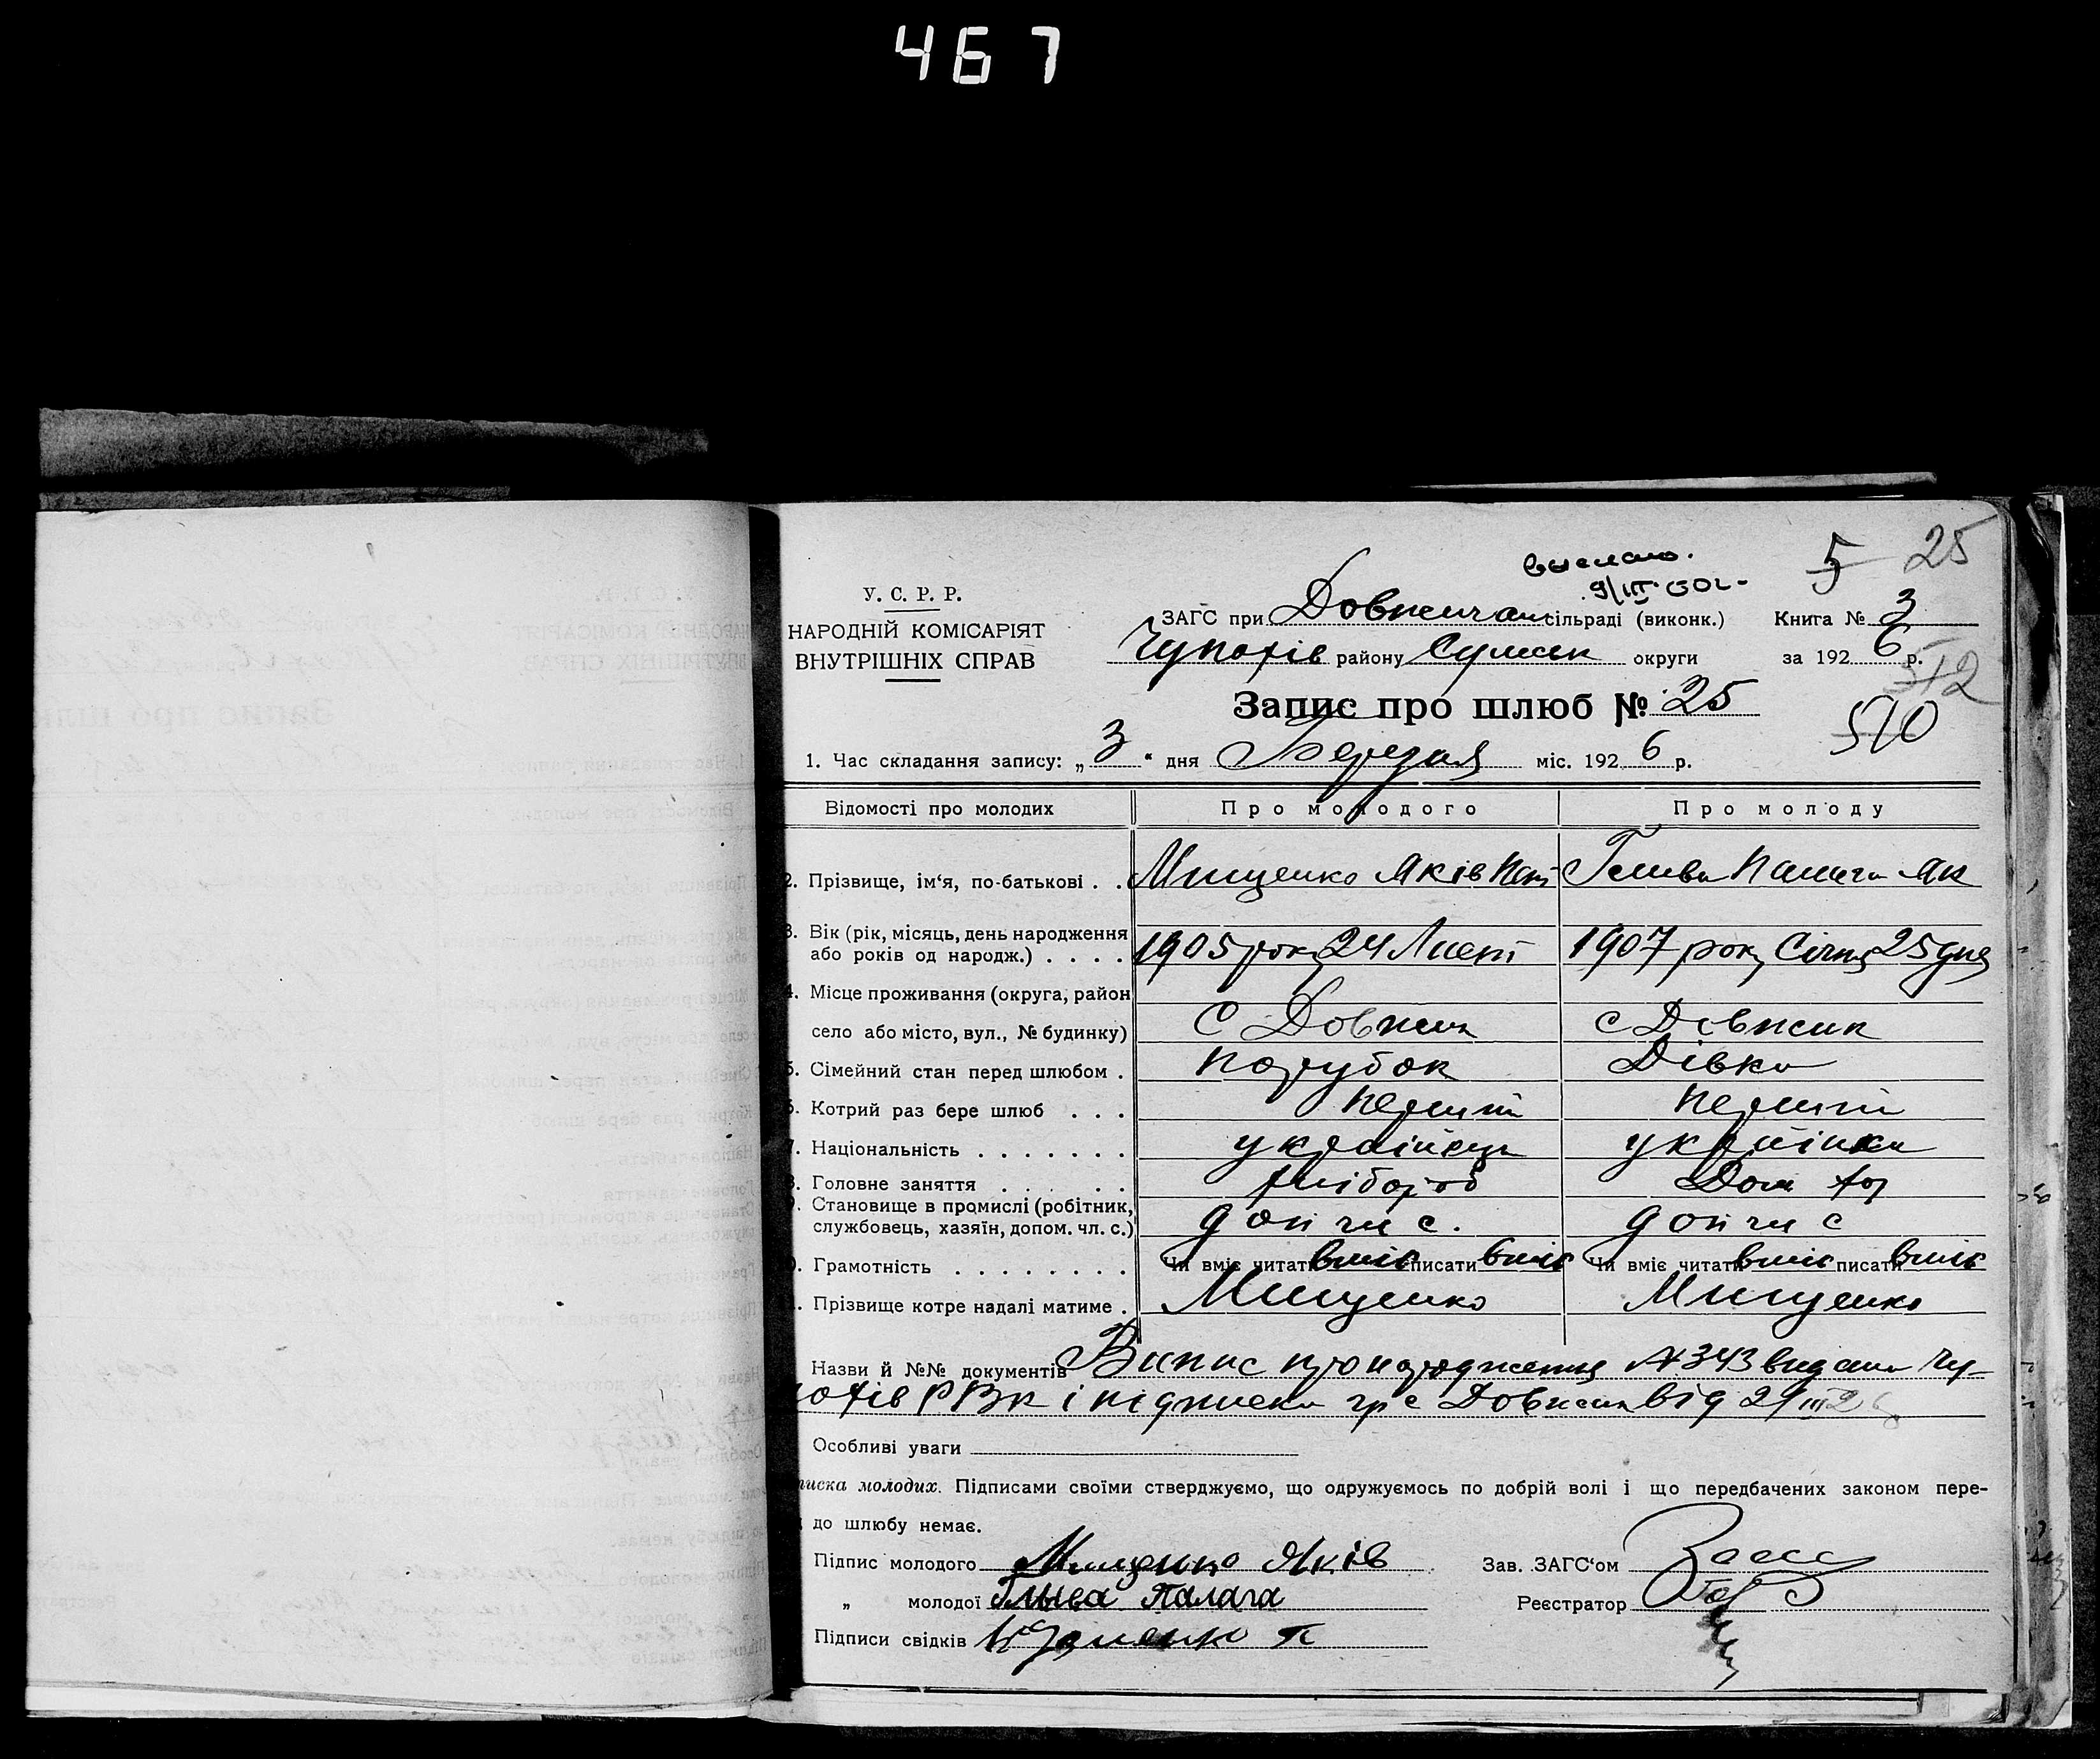 467
5 25
У. С. Р. Р.
НАРОДНІЙ КОМІСАРІЯТ
ВНУТРІШНІХ СПРАВ
ЗАГС при Довжичан сільраді (виконк.) Книга № 3
району Сумськ округи за 1926 р.
512
Запис про шлюб № 25
510
1. Час складання запису: „3“ дня Березня міс. 1926 р.
Відомості про молодих Про молодого Про молоду
2. Прізвище, ім‘я, по-батькові . . Мищенко Яків Як
3. Вік (рік, місяць, день народження
або років од народж.) . . . . 1905 року 24 Лист 1907 року Січня 25 дня
4. Місце проживання (округа, район
село або місто, вул., № будинку) С Довжик с Довжик
5. Сімейний стан перед шлюбом . Парубок Дівка
6. Котрий раз бере шлюб . . . Перший Перший
7. Національність . . . . . . . українець українка
8. Головне заняття . . . . . . хлібороб Дом
9. Становище в промислі (робітник,
службовець, хазяїн, допом. чл. с.) доп чл с. доп чл с
10. Грамотність . . . . . . . . Чи вміє читати вміє писати вміє Чи вміє читати вміє писати вміє
11. Прізвище котре надалі матиме . Мищенко Мищенко
Назви й №№ документів Випис про народження № 343 видана Чу-
РВК і підписка гр с Довжик від 2/III 26
Особливі уваги
писка молодих. Підписами своїми стверджуємо, що одружуємось по добрій волі і що передбачених законом пере-
до шлюбу немає.
Підпис молодого Мищенко Яків Зав. ЗАГС‘ом
„ молодої Палага Реєстратор
Підписи свідків